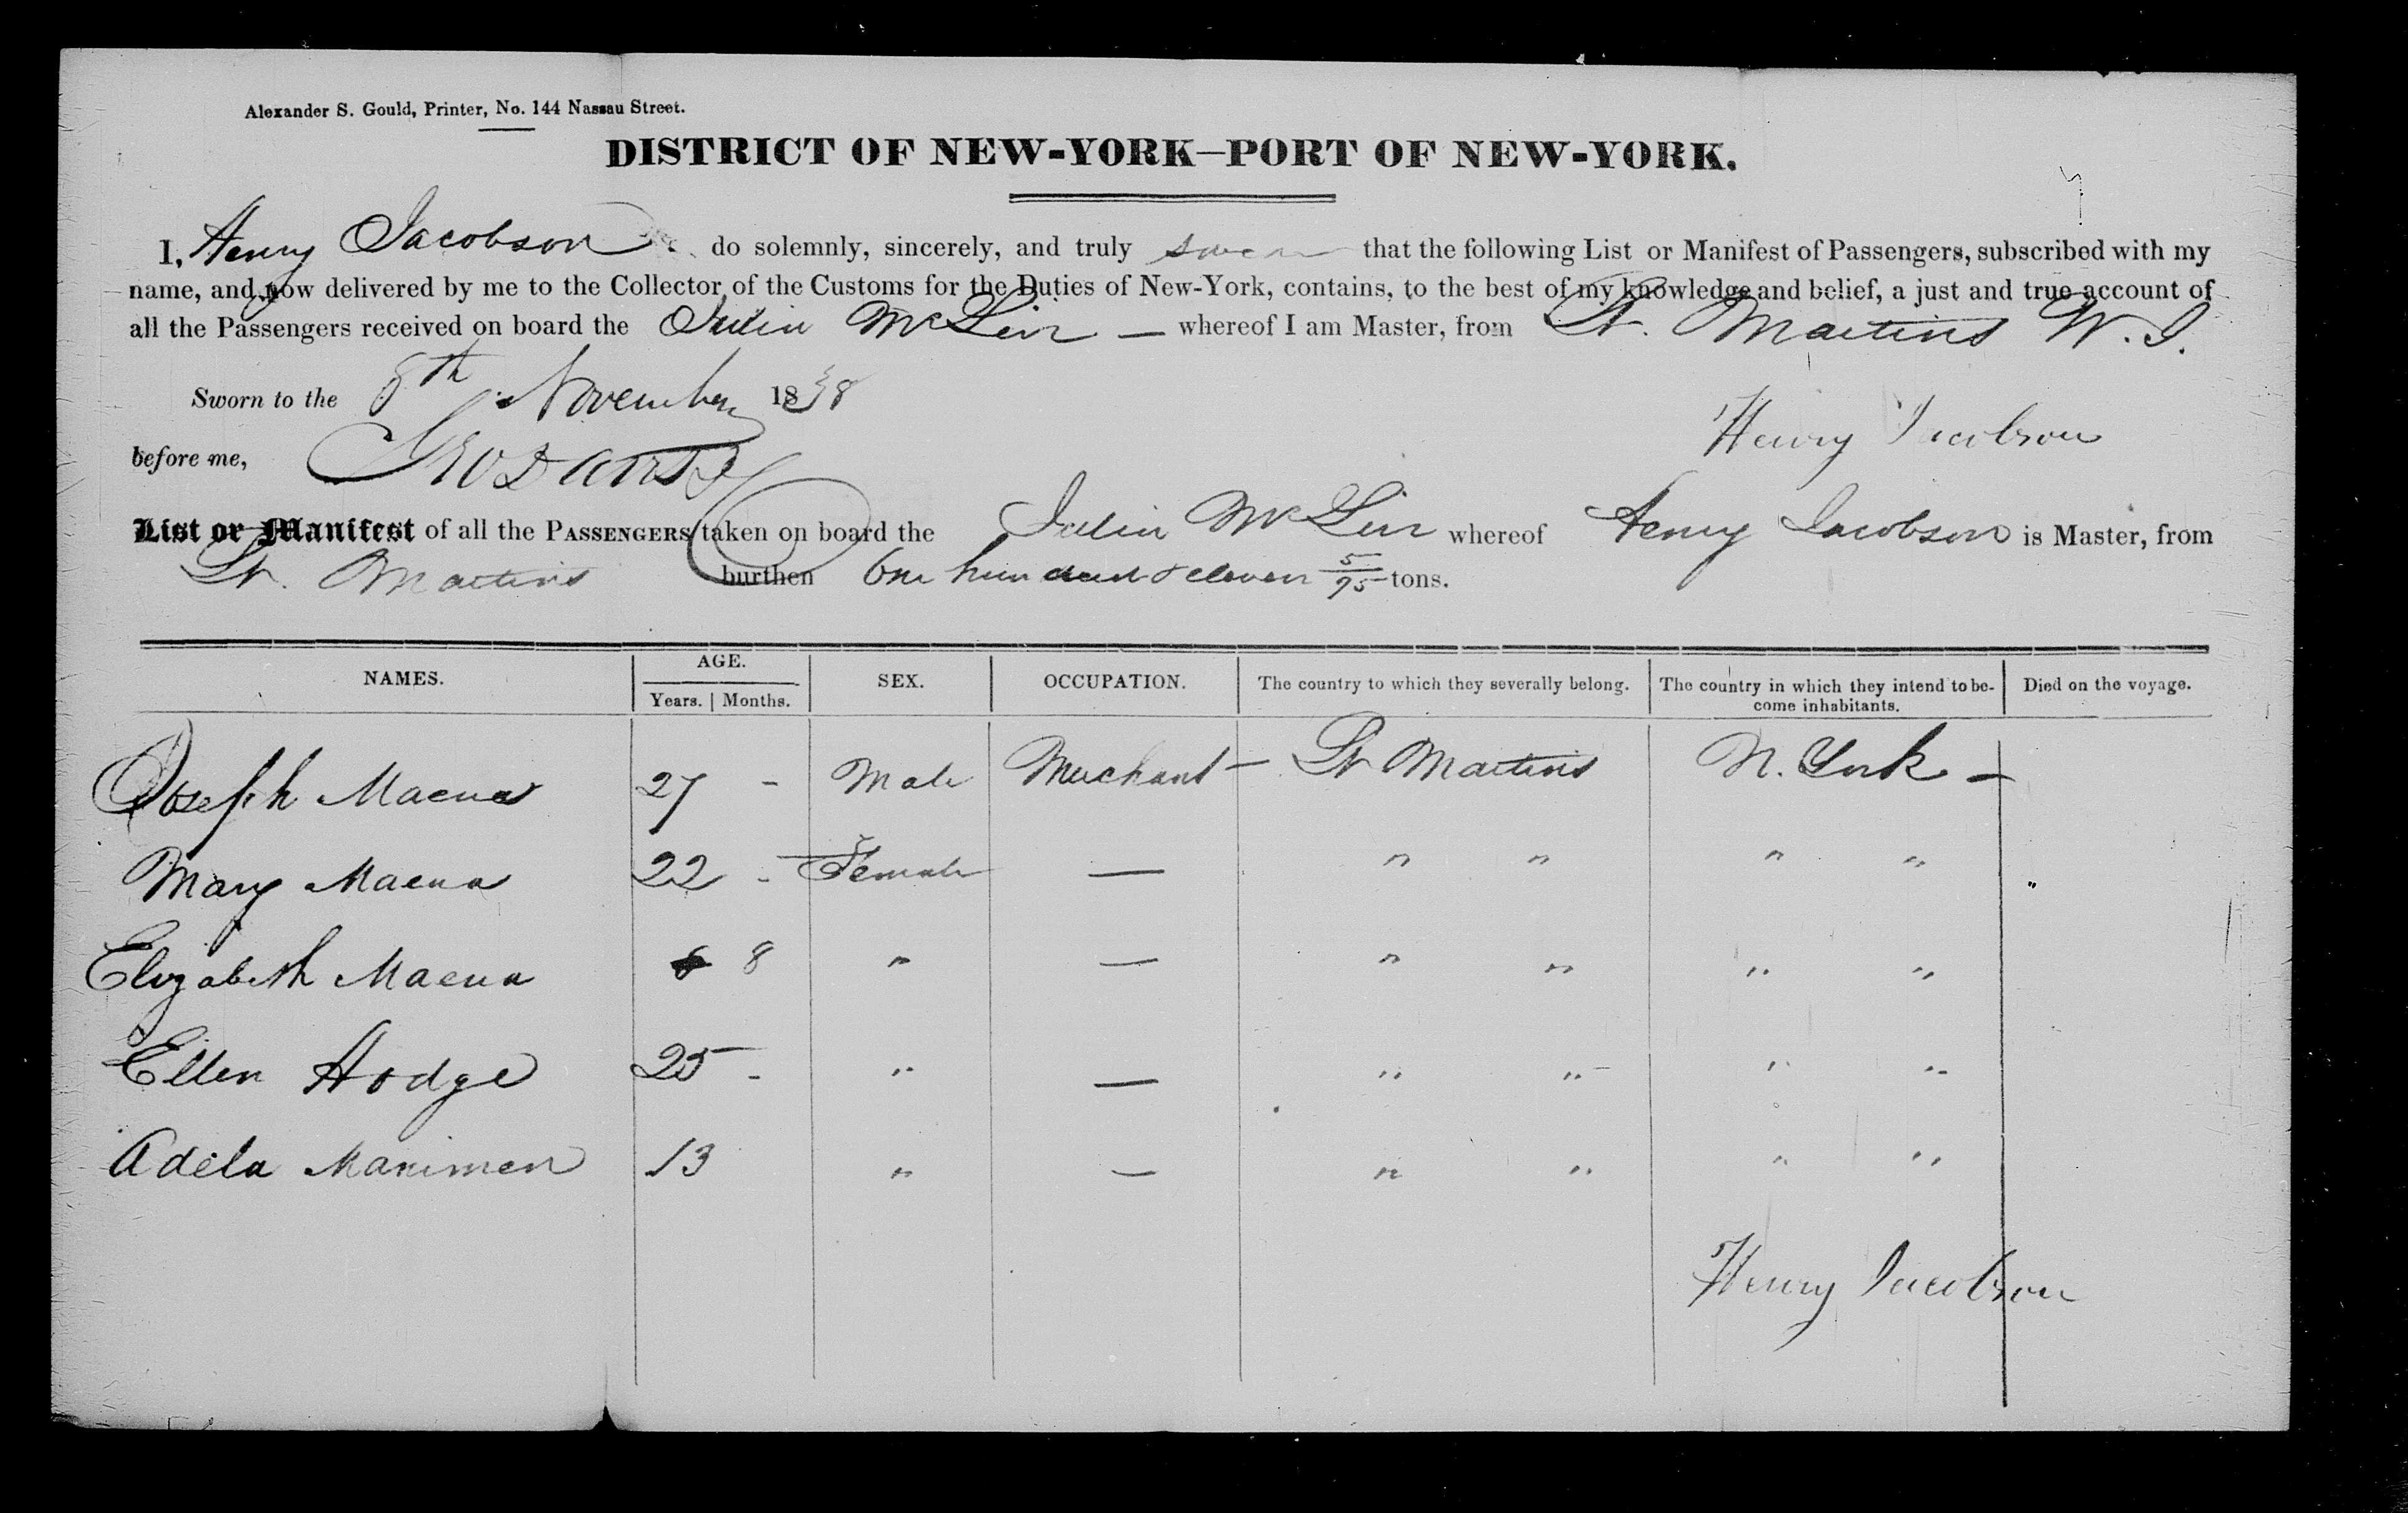 Alexander S. Gould, Printer, No. 144 Nassau Street.
DISTRICT OF NEW-YORK—PORT OF NEW-YORK.
I, Henry Jacobson do solemnly, sincerely, and truly swear that the following List or Manifest of Passengers, subscribed with my
name, and now delivered by me to the Collector of the Customs for the Duties of New-York, contains, to the best of my knowledge and belief, a just and true account of
all the Passengers received on board the Julia — whereof I am Master, from St. Martins W. I.
Sworn to the 8th November 1838
Henry Jacobson
before me,
List or Manifest of all the PASSENGERS taken on board the Julia whereof Henry Jacobson is Master, from
St. Martins burthen One hundred & eleven 5/95 tons.
NAMES. AGE. SEX. OCCUPATION. The country to which they severally belong. The country in which they intend to be- Died on the voyage.
Years. Months. come inhabitants.
Joseph 27 - Male Merchant — St Martins N. York —
Mary 22 - Female — " " " "
Elizabeth 8 " — " " " "
Ellen Hodge 25 - " — " " " "
Adela 13 " — " " " "
Henry Jacobson